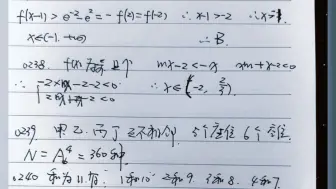 f(x-1) > e⁻²-e² = -f(2) = f(-2) ∴ x-1>-2 ∴ x>-1
x∈(-1, +∞) ∴ B.
0238. f(x)为奇且↑ mx-2<-x xm+x-2<0
∴ { -2x+x-2<0 2x+x-2<0 ∴ x∈(-2, 2/3)
0239 甲乙丙丁 互不相邻 5个座位 6个空位
N = A₆⁴ = 360种
0240 和为11, 有: 1和10 2和9. 3和8. 4和7.